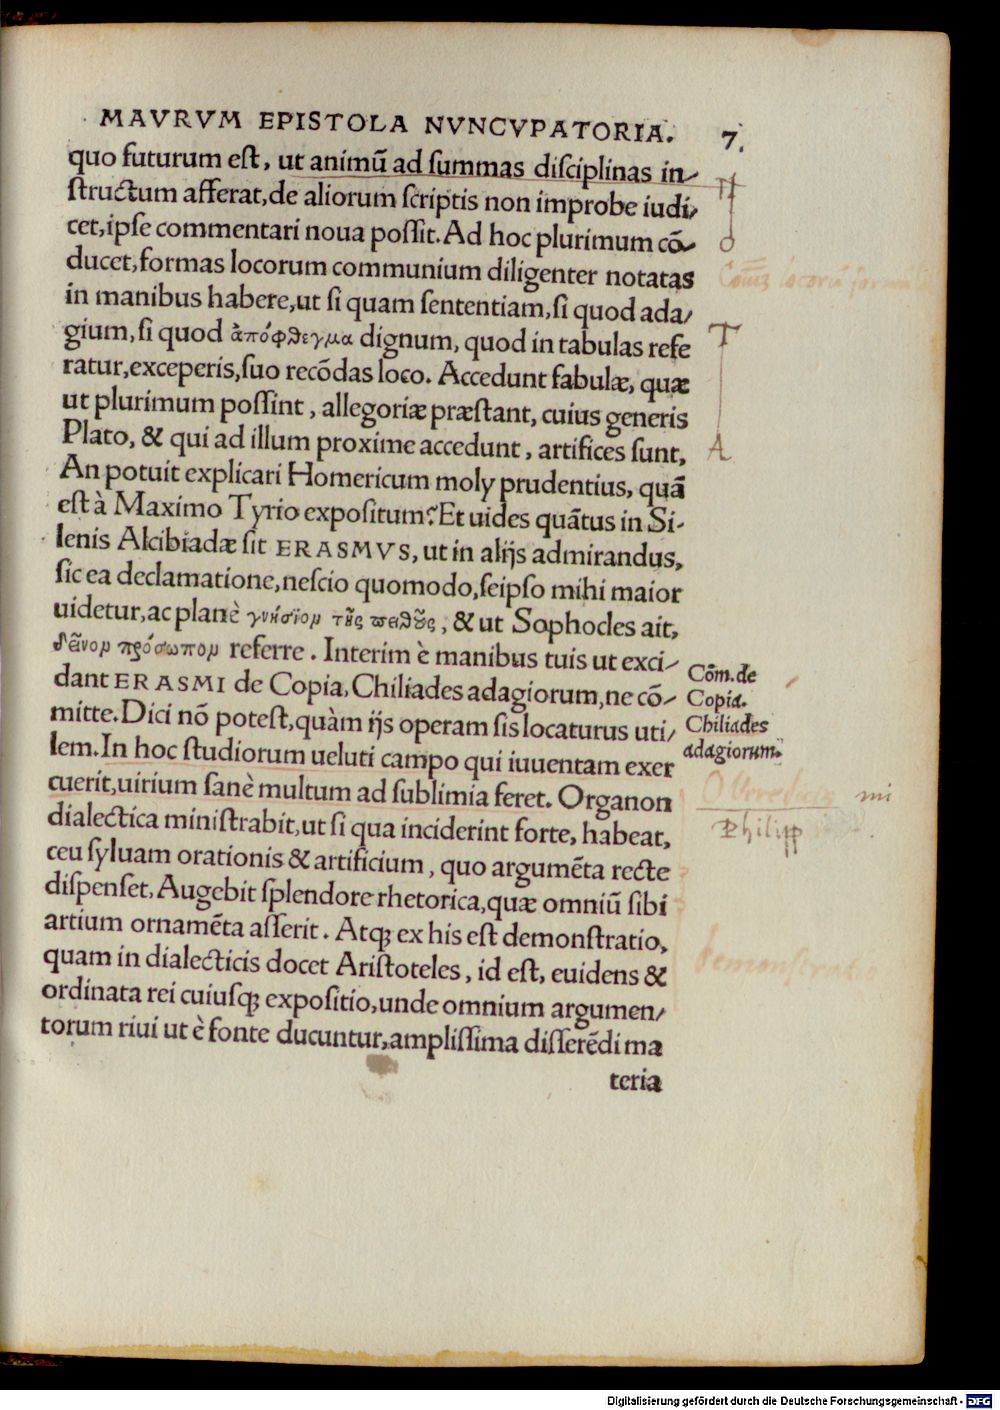 MAVRVM EPISTOLA NVNCVPATORIA. 7.
quo futurum eſt, ut animū ad ſummas diſciplinas in-
ſtructum afferat, de aliorum ſcriptis non improbe iudi-
cet, ipſe commentari noua poſſit. Ad hoc plurimum cō-
ducet, formas locorum communium diligenter notatas
in manibus habere, ut ſi quam ſententiam, ſi quod ada/
gium, ſi quod ἀπόφθεγμα dignum, quod in tabulas refe
ratur, exceperis, ſuo recōdas loco. Accedunt fabulæ, quæ
ut plurimum poſſint, allegoriæ præſtant, cuius generis
Plato, & qui ad illum proxime accedunt, artifices ſunt,
An potuit explicari Homericum moly prudentius, quā
eſt à Maximo Tyrio expoſitum? Et uides quātus in Si-
lenis Alcibiadæ ſit ERASMVS, ut in alijs admirandus,
ſic ea declamatione, neſcio quomodo, ſeipſo mihi maior
uidetur, ac planè γνήσιον τῆς πειθοῦς, & ut Sophocles ait,
δεῖνον πρόσωπον referre. Interim è manibus tuis ut exci-
dant ERASMI de Copia, Chiliades adagiorum, ne cō-
mitte. Dici nō poteſt, quàm ijs operam ſis locaturus uti/
lem. In hoc ſtudiorum ueluti campo qui iuuentam exer
cuerit, uirium ſanè multum ad ſublimia feret. Organon
dialectica miniſtrabit, ut ſi qua inciderint forte, habeat,
ceu ſyluam orationis & artificium, quo argumēta recte
diſpenſet, Augebit ſplendore rhetorica, quæ omniū ſibi
artium ornamēta aſſerit. Atqꝫ ex his eſt demonſtratio,
quam in dialecticis docet Ariſtoteles, id eſt, euidens &
ordinata rei cuiuſqꝫ expoſitio, unde omnium argumen/
torum riui ut è fonte ducuntur, ampliſſima diſſerēdi ma
teria
T
A
Cōm. de
Copia.
Chiliades
adagiorum.
Philipp
demonstratio
Digitalisierung gefördert durch die Deutsche Forschungsgemeinschaft - DFG